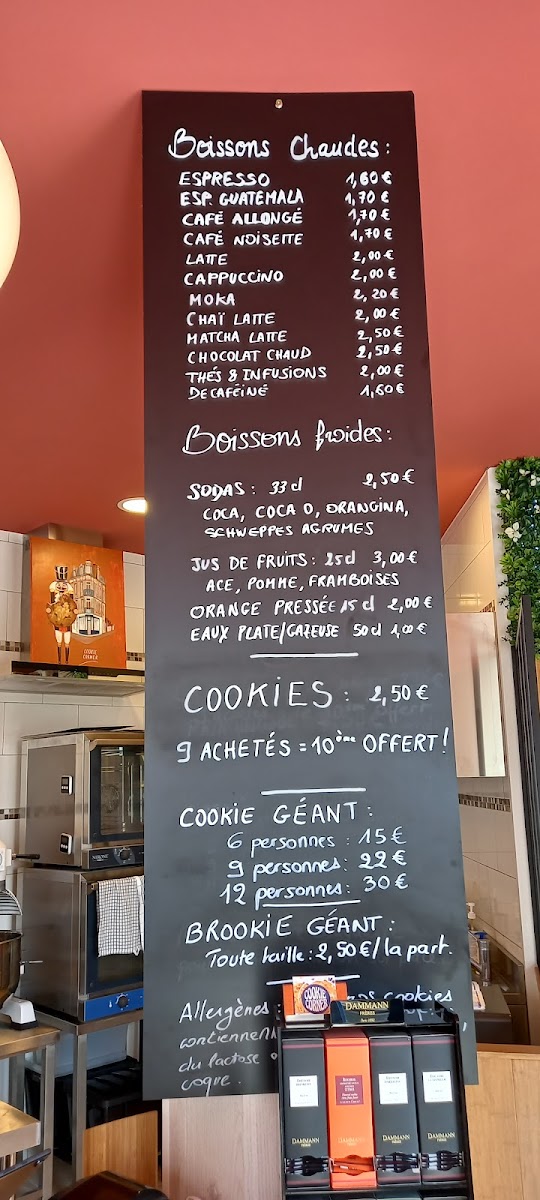 Boissons Chaudes :
ESPRESSO 1,60 €
ESP. GUATEMALA 1,70 €
CAFÉ ALLONGÉ 1,70 €
CAFÉ NOISETTE 1,70 €
LATTE 2,00 €
CAPPUCCINO 2,00 €
MOKA 2,20 €
CHAÏ LATTE 2,00 €
MATCHA LATTE 2,50 €
CHOCOLAT CHAUD 2,50 €
THÉS & INFUSIONS 2,00 €
DECAFÉINÉ 1,60 €
Boissons froides :
SODAS : 33 cl 2,50 €
COCA, COCA O, ORANGINA,
SCHWEPPES AGRUMES
JUS DE FRUITS : 25 cl 3,00 €
ACE, POMME, FRAMBOISES
ORANGE PRESSÉE 15 cl 2,00 €
EAUX PLATE/GAZEUSE 50 cl 1,00 €
COOKIES : 2,50 €
9 ACHETÉS = 10ème OFFERT !
COOKIE GÉANT :
6 personnes : 15 €
9 personnes : 22 €
12 personnes : 30 €
BROOKIE GÉANT :
Toute taille : 2,50 € / la part.
Allergènes cookies
contiennent
du lactose
coque.
COOKIE
CORNER
DAMMANN
FRÈRES
DAMMANN
DAMMANN
DAMMANN
DAMMANN
COOKIE
CORNER